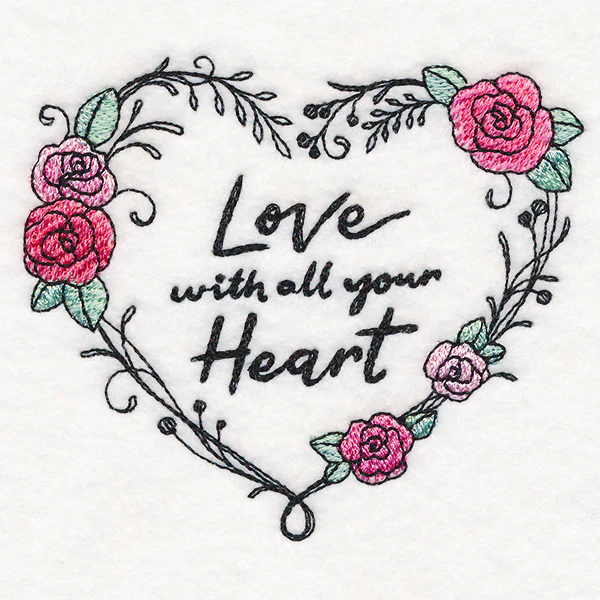 Love
with all your
Heart